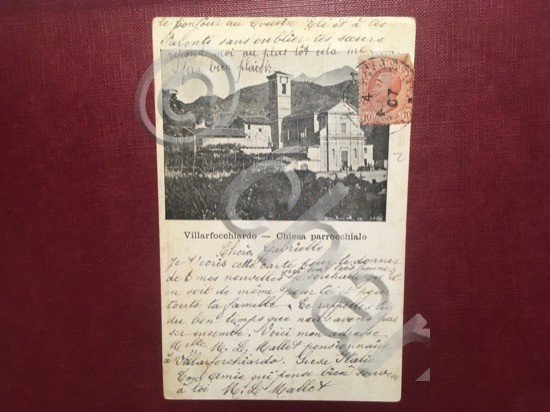 le bonjour au cousin Eli et à tes
Parents sans oublier tes sœurs
répond moi au plus tôt cela me
fera bien plaisir
07
10 10
Villarfocchiardo — Chiesa parrocchiale
Chère Gabrielle
Je t'écris cette carte pour te donner
de mes nouvelles qui sont très bonnes
Je souhaite qu'il
en soit de même pour toi et pour
toute ta famille. Te rappelles tu
du bon temps que nous avons pas
ser ensemble. Voici mon adresse
Melle M. L. Mallet pensionnaire
à Villarfocchiardo. Suse Italie
Ton amie qui pense bien souvent
à toi M. L. Mallet